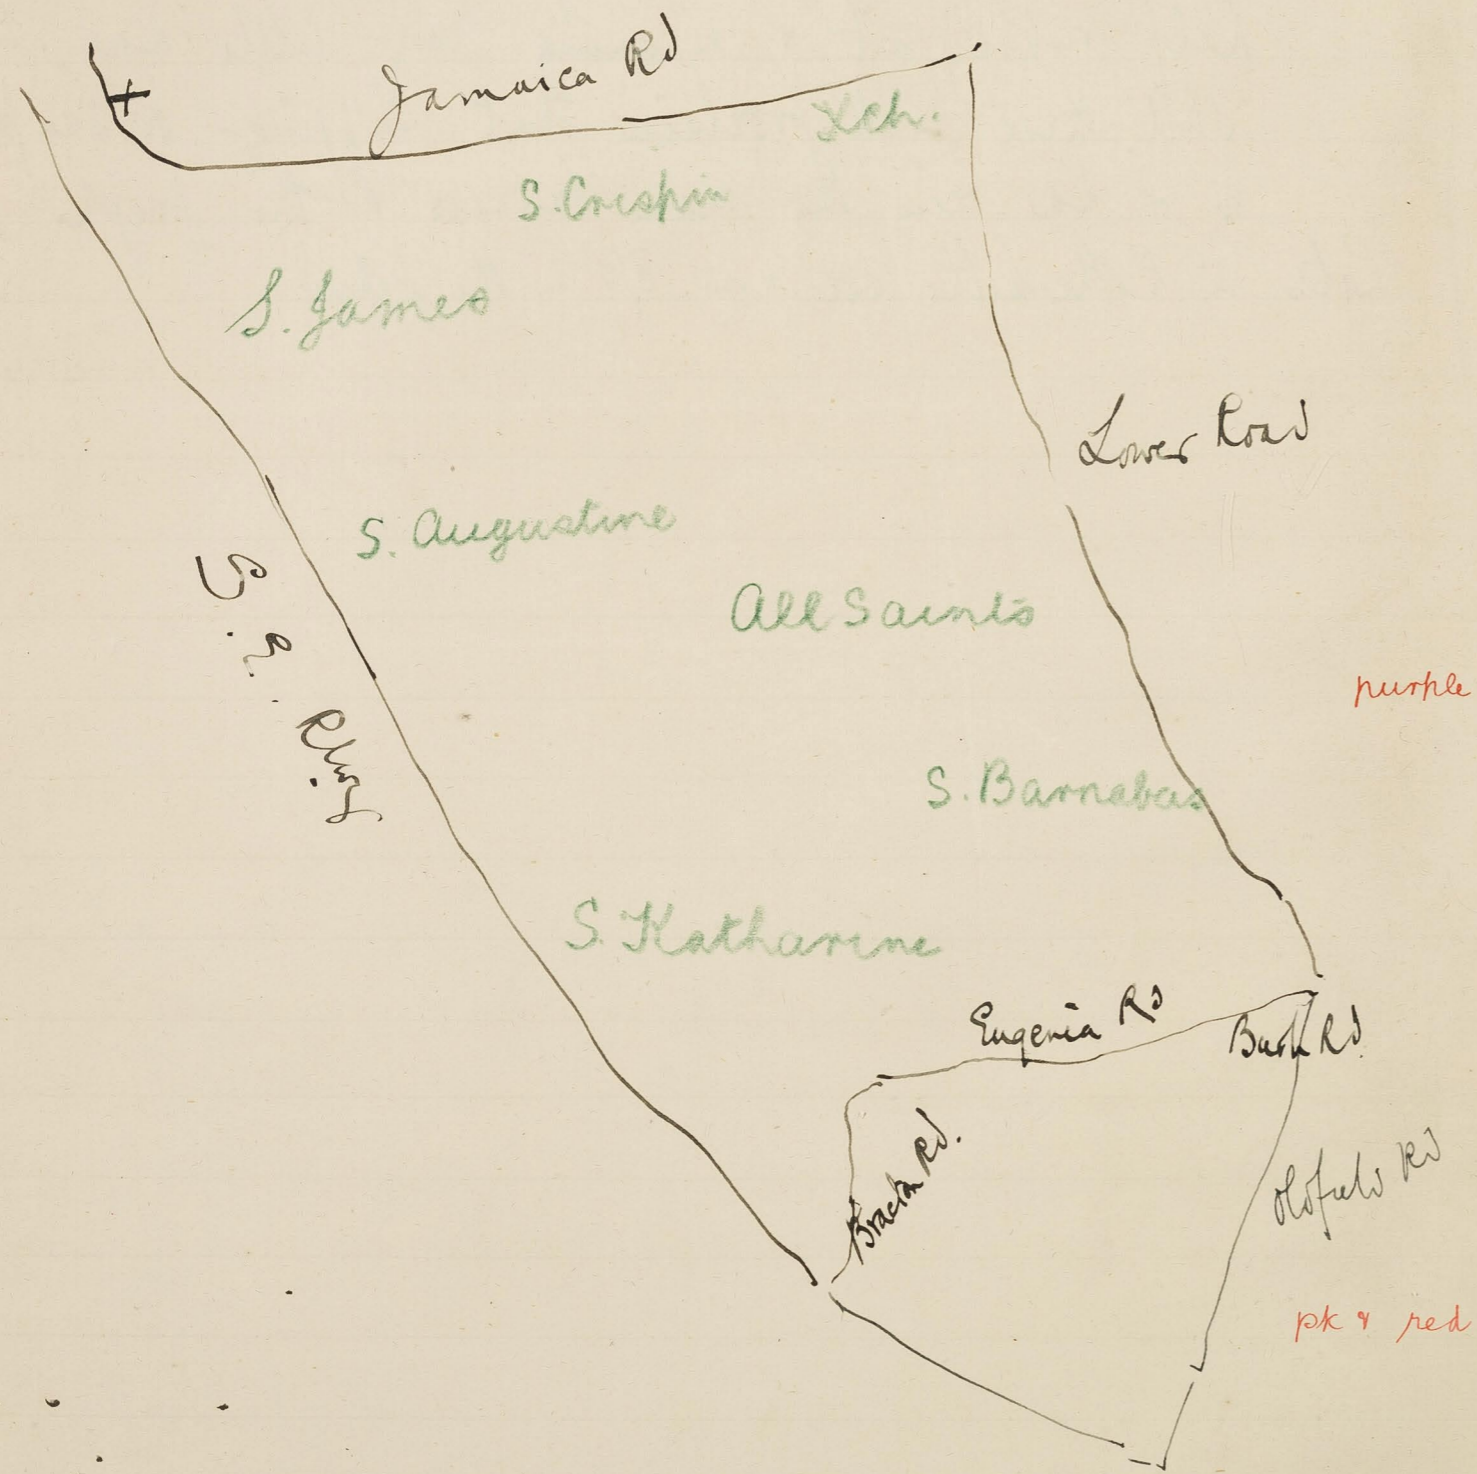 Jamaica Rd
Xch.
S. Crispin
S. James
Lower Road
S. Augustine
S. E. Rlwy
All Saints
purple
S. Barnabas
S. Katharine
Eugenia Rd
Bush Rd
Bracton Rd.
Oldfield Rd
pk & red